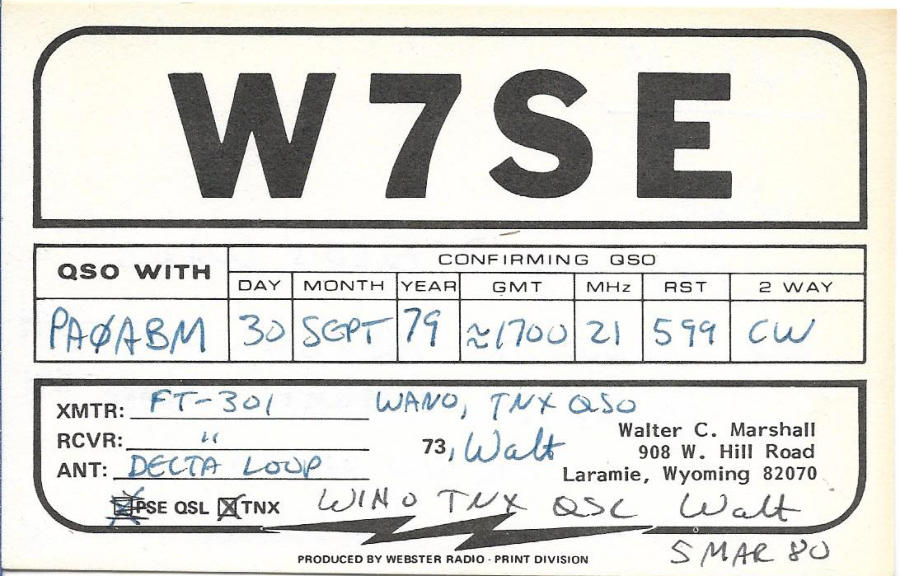 W7SE
QSO WITH
CONFIRMING QSO
DAY MONTH YEAR GMT MHz RST 2 WAY
PAØABM 30 SEPT 79 ≈1700 21 599 CW
XMTR: FT-301 WANO, TNX QSO
RCVR: " 73, Walt
ANT: DELTA LOOP
Walter C. Marshall
908 W. Hill Road
Laramie, Wyoming 82070
PSE QSL TNX WINO TNX QSL Walt
5 MAR 80
PRODUCED BY WEBSTER RADIO - PRINT DIVISION